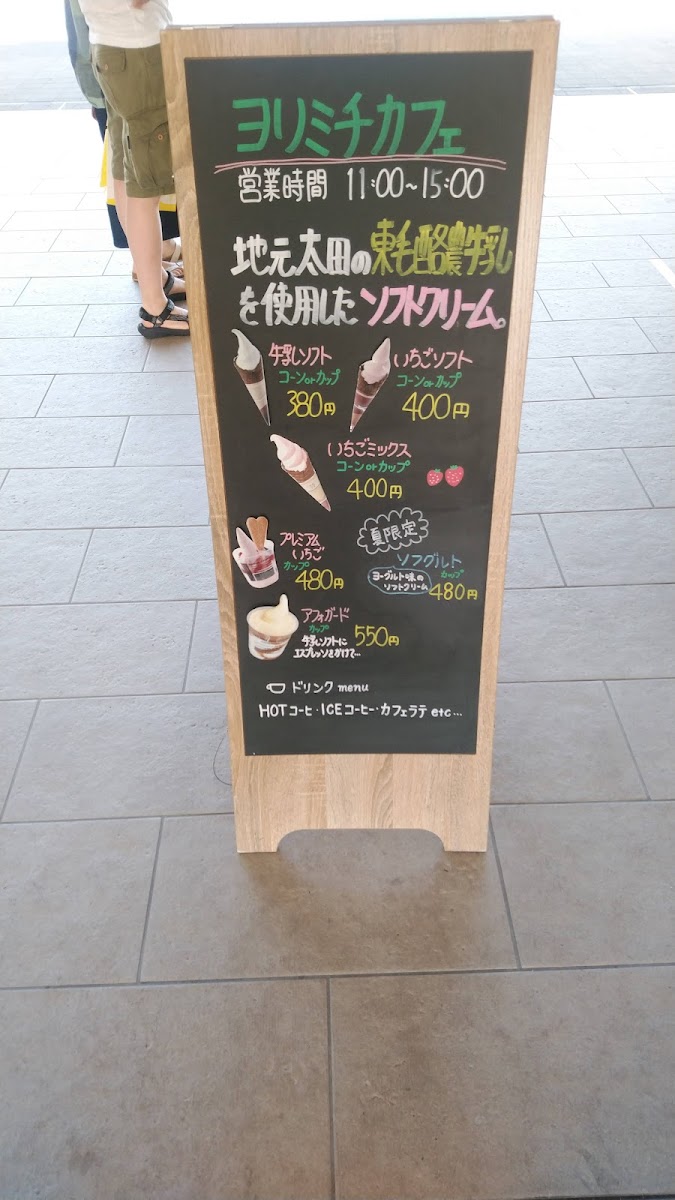 ヨリミチカフェ
営業時間 11:00~15:00
地元太田の東毛酪農牛乳
を使用したソフトクリーム。
牛乳ソフト
コーンorカップ
380円
いちごソフト
コーンorカップ
400円
いちごミックス
コーンorカップ
400円
プレミアム
いちご
カップ
480円
夏限定
ソフグルト
ヨーグルト味の
ソフトクリーム
カップ
480円
アフォガード
カップ
牛乳ソフトに
エスプレッソをかけて…
550円
ドリンク menu
HOTコーヒ・ICEコーヒー・カフェラテ etc…